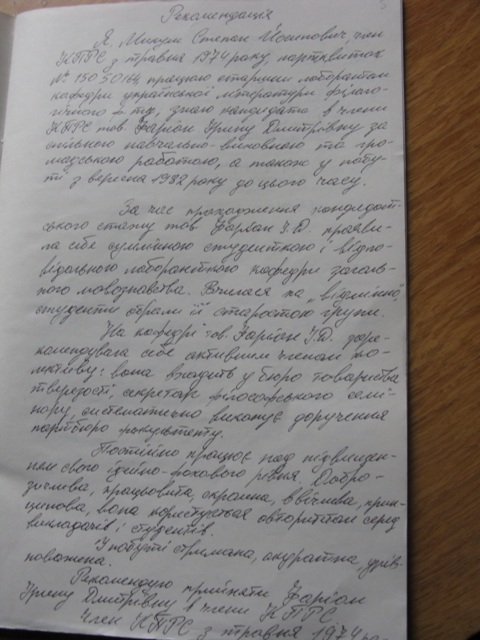 Рекомендація
Я, Мицин Степан Йосипович член
КПРС з травня 1974 року, партквиток
№ 15050164 працюю старшим лаборантом
кафедри української літератури філоло-
гічного ф-ту, знаю кандидата в члени
КПРС тов Фаріон Ірину Дмитрівну за
спільною навчально-виховною та гро-
мадською роботою, а також у побу-
ті з вересня 1982 року до цього часу.
За час проходження кандидат-
ського стажу тов Фаріон І.Д. прояви-
ла себе сумлінною студенткою і відпо-
відальною лаборанткою кафедри загаль-
ного мовознавства. Вчилася на "відмінно",
студенти обрали її старостою групи.
На кафедрі тов. Фаріон І.Д. заре-
комендувала себе активним членом ко-
лективу: вона входить у бюро товариства
тверезості, секретар філософського семі-
нару, систематично виконує доручення
партбюро факультету.
Постійно працює над підвищен-
ням свого ідейно-фахового рівня. Добро-
зичлива, працьовита, скромна, ввічлива, прин-
ципова, вона користується авторитетом серед
викладачів і студентів.
У побуті стримана, акуратна, урів-
новажена.
Рекомендую прийняти Фаріон
Ірину Дмитрівну в члени КПРС
Член КПРС з травня 1974